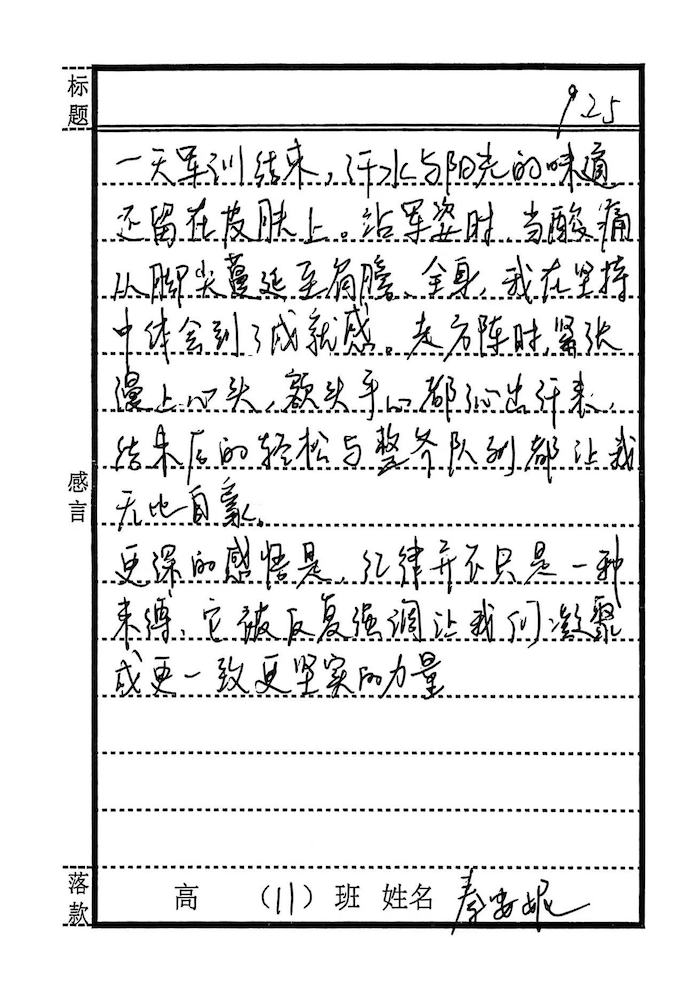 标题
9.25
一天军训结束，汗水与阳光的味道
还留在皮肤上。站军姿时，当酸痛
从脚尖蔓延至肩膀、全身，我在坚持
中体会到了成就感。走方阵时，紧张
漫上心头，额头手心都沁出汗来，
结束后的轻松与整齐队列都让我
无比自豪。
感言
更深的感悟是，纪律并不只是一种
束缚、它被反复强调让我们凝聚
成更一致更坚实的力量
落款
高 （11）班 姓名 秦安妮